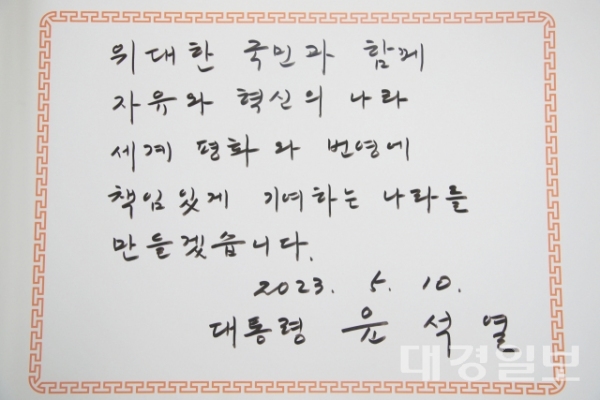 위대한 국민과 함께
자유와 혁신의 나라
세계 평화와 번영에
책임있게 기여하는 나라를
만들겠습니다.
2023. 5. 10.
대통령 윤석열
대경일보